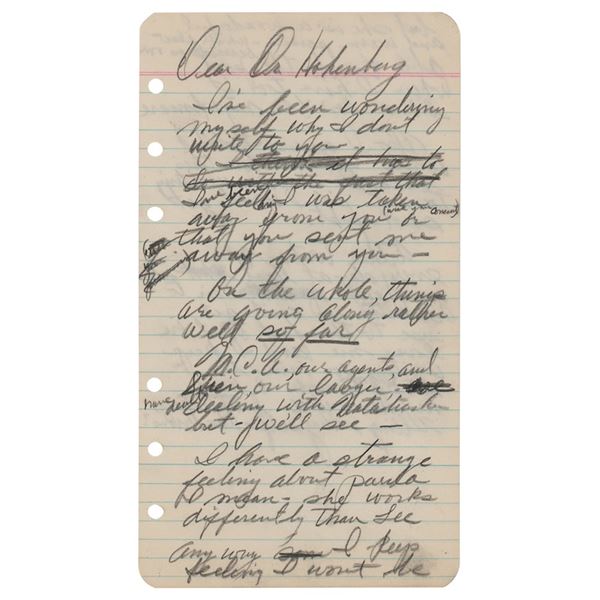 Dear Dr Hohenberg
I've been wondering
myself why I don't
write to you
I think it has to
do with the fact that
I've been feeling I was taken
away from you (with your consent) or
that you sent me
away from you -
On the whole, things
are going along rather
well so far
M.C.A. our agents, and
Stein, our lawyer, are
dealing with Natasha
but - we'll see -
I have a strange
feeling about Paula
I mean - she works
differently than Lee
any way I keep
feeling I won't be